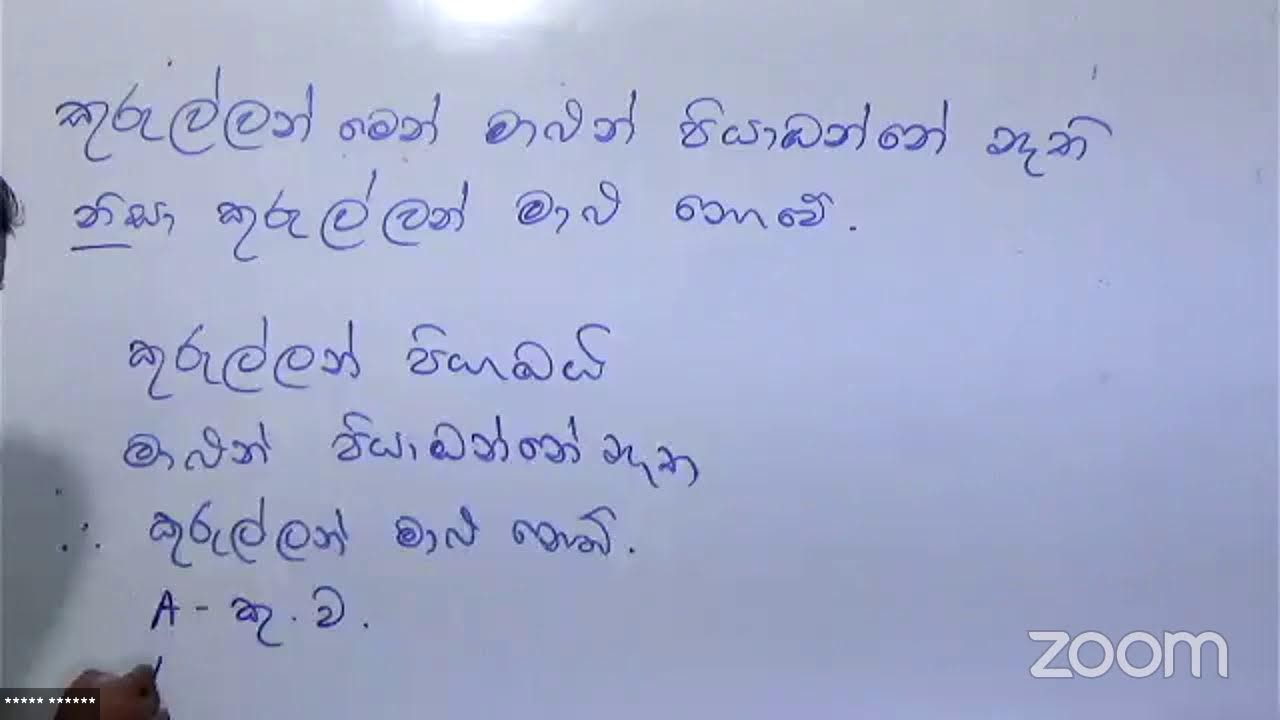 කුරුල්ලන් මෙන් මාළුන් පියාඹන්නේ නැති
නිසා කුරුල්ලන් මාළු නොවේ.
කුරුල්ලන් පියාඹයි
මාළුන් පියාඹන්නේ නැත
∴ කුරුල්ලන් මාළු නොවේ.
A - කු. ව.
zoom
***** ******